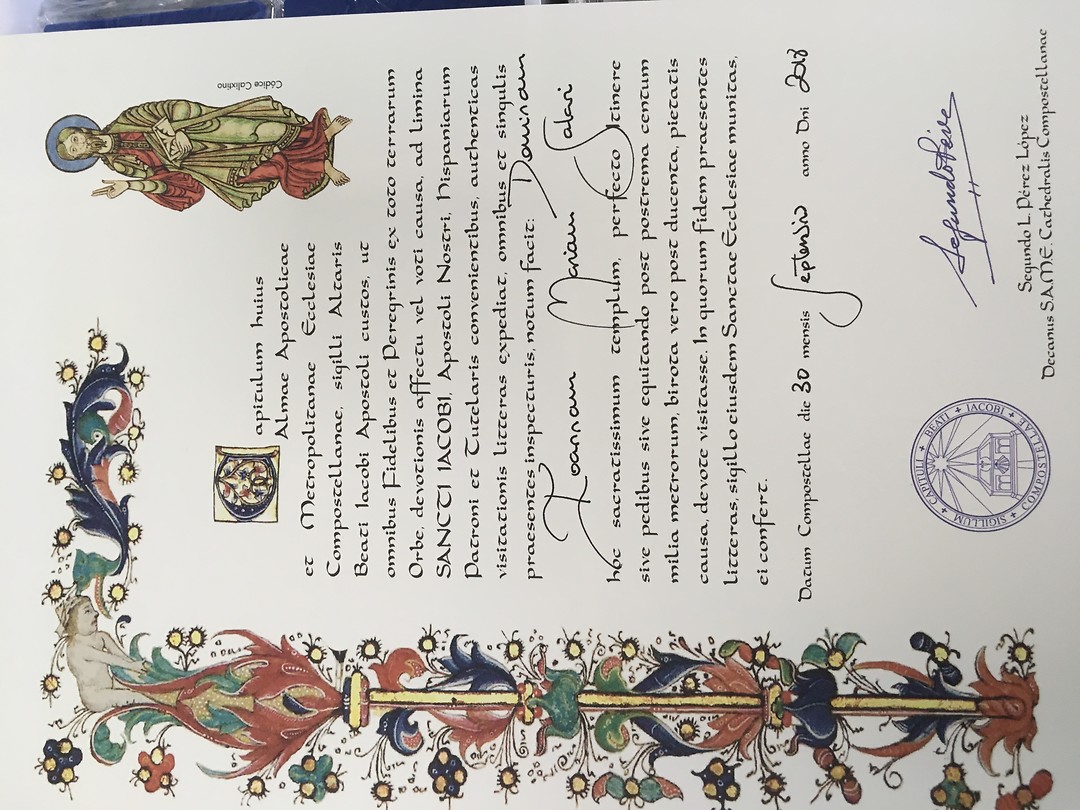 Códice Calixtino
Capitulum huius
Almae Apostolicae
et Metropolitanae Ecclesiae
Compostellanae, sigilli Altaris
Beati Iacobi Apostoli custos, ut
omnibus Fidelibus et Peregrinis ex toto terrarum
Orbe, devotionis affectu vel voti causa, ad limina
SANCTI IACOBI, Apostoli Nostri, Hispaniarum
Patroni et Tutelaris convenientibus, authenticas
visitationis litteras expediat, omnibus et singulis
praesentes inspecturis, notum facit: Dominam
Ioannam Mariam Salari
hoc sacratissimum templum, perfecto Itinere
sive pedibus sive equitando post postrema centum
milia metrorum, birota vero post ducenta, pietatis
causa, devote visitasse. In quorum fidem praesentes
litteras, sigillo eiusdem Sanctae Ecclesiae munitas,
ei confert.
Datum Compostellae die 30 mensis Septembris anno Dni 2018
Segundo L. Pérez López
Decanus S.A.M.E. Cathedralis Compostellanae
SIGILLUM + CAPITULI + BEATI + IACOBI + COMPOSTELLAE